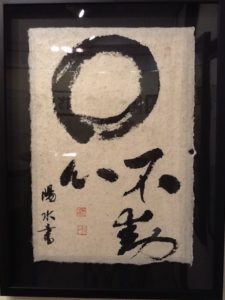 不動
心
陽水書